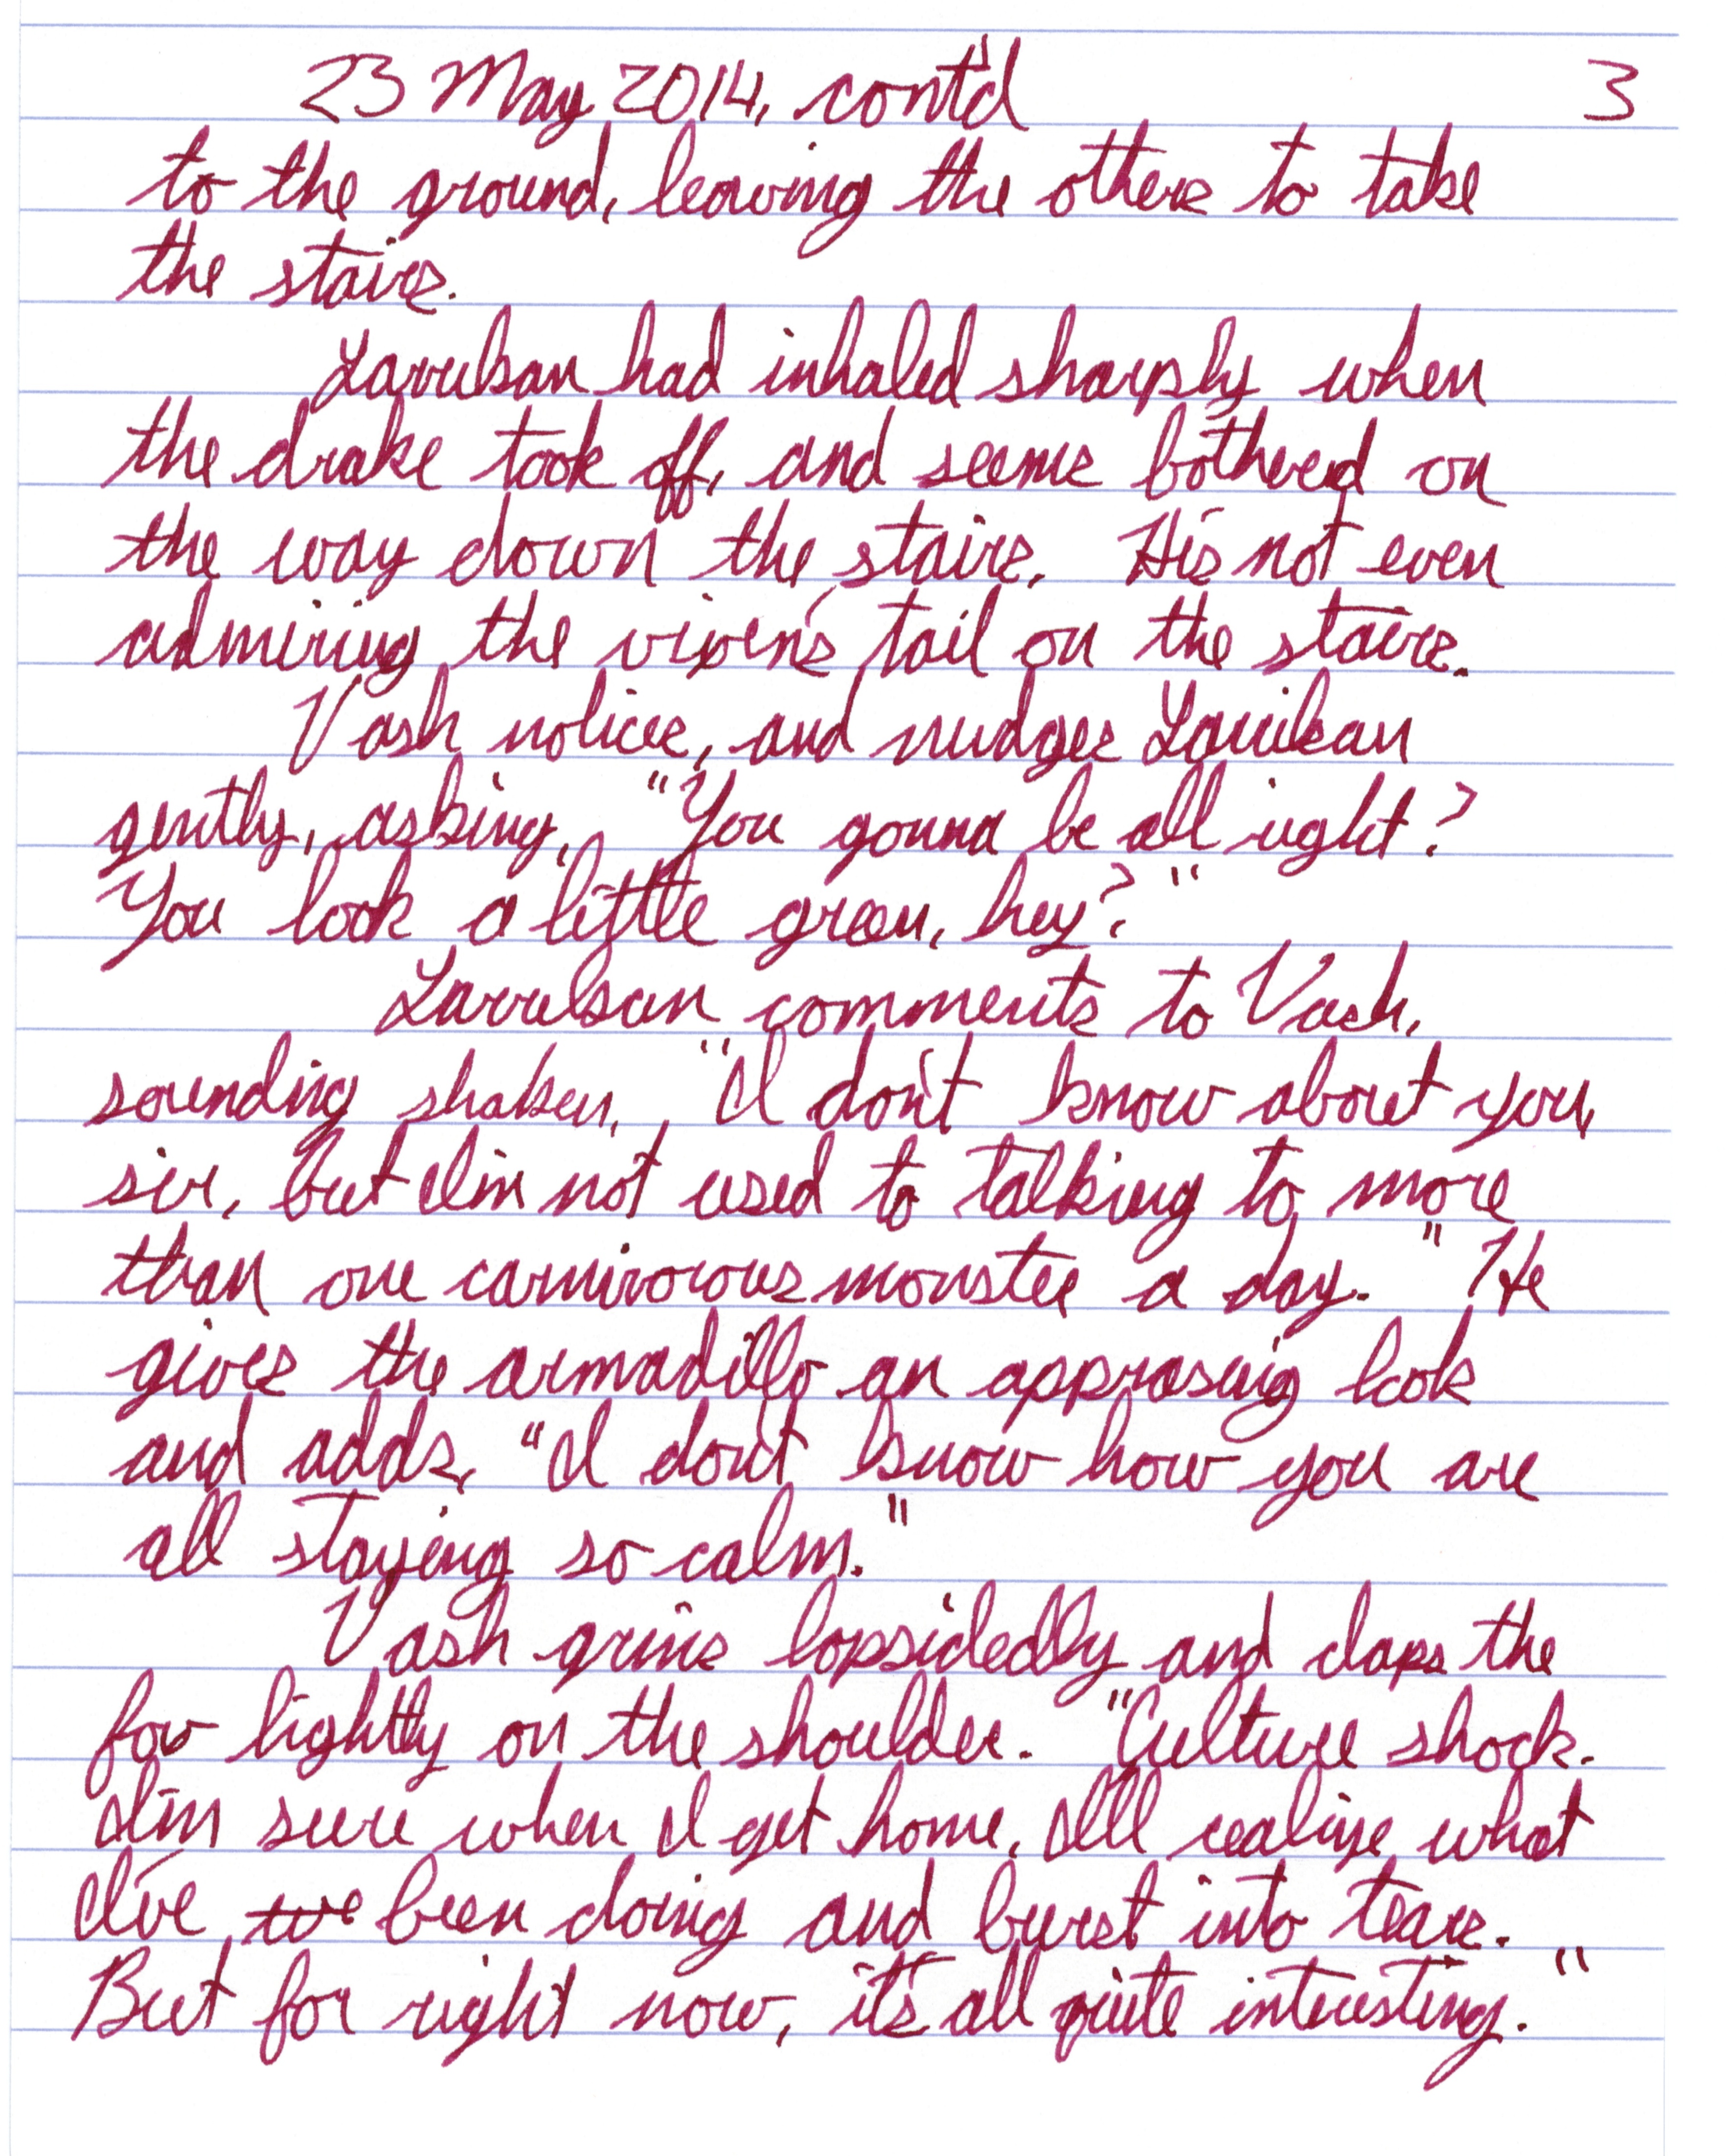 23 May 2014, cont'd 3
to the ground, leaving the others to take
the stairs.
Larrikan had inhaled sharply when
the drake took off, and seems bothered on
the way down the stairs. He's not even
admiring the vixen's tail on the stairs.
Vash notices, and nudges Larrikan
gently, asking, "You gonna be all right?
You look a little green, hey?"
Larrikan comments to Vash,
sounding shaken, "I don't know about you,
sir, but I'm not used to talking to more
than one carnivorous monster a day." He
gives the armadillo an apprasing look
and adds, "I don't know how you are
all staying so calm."
Vash grins lopsidedly and claps the
fox lightly on the shoulder. "Culture shock.
I'm sure when I get home, I'll realize what
I've been doing and burst into tears.
But for right now, it's all quite interesting."